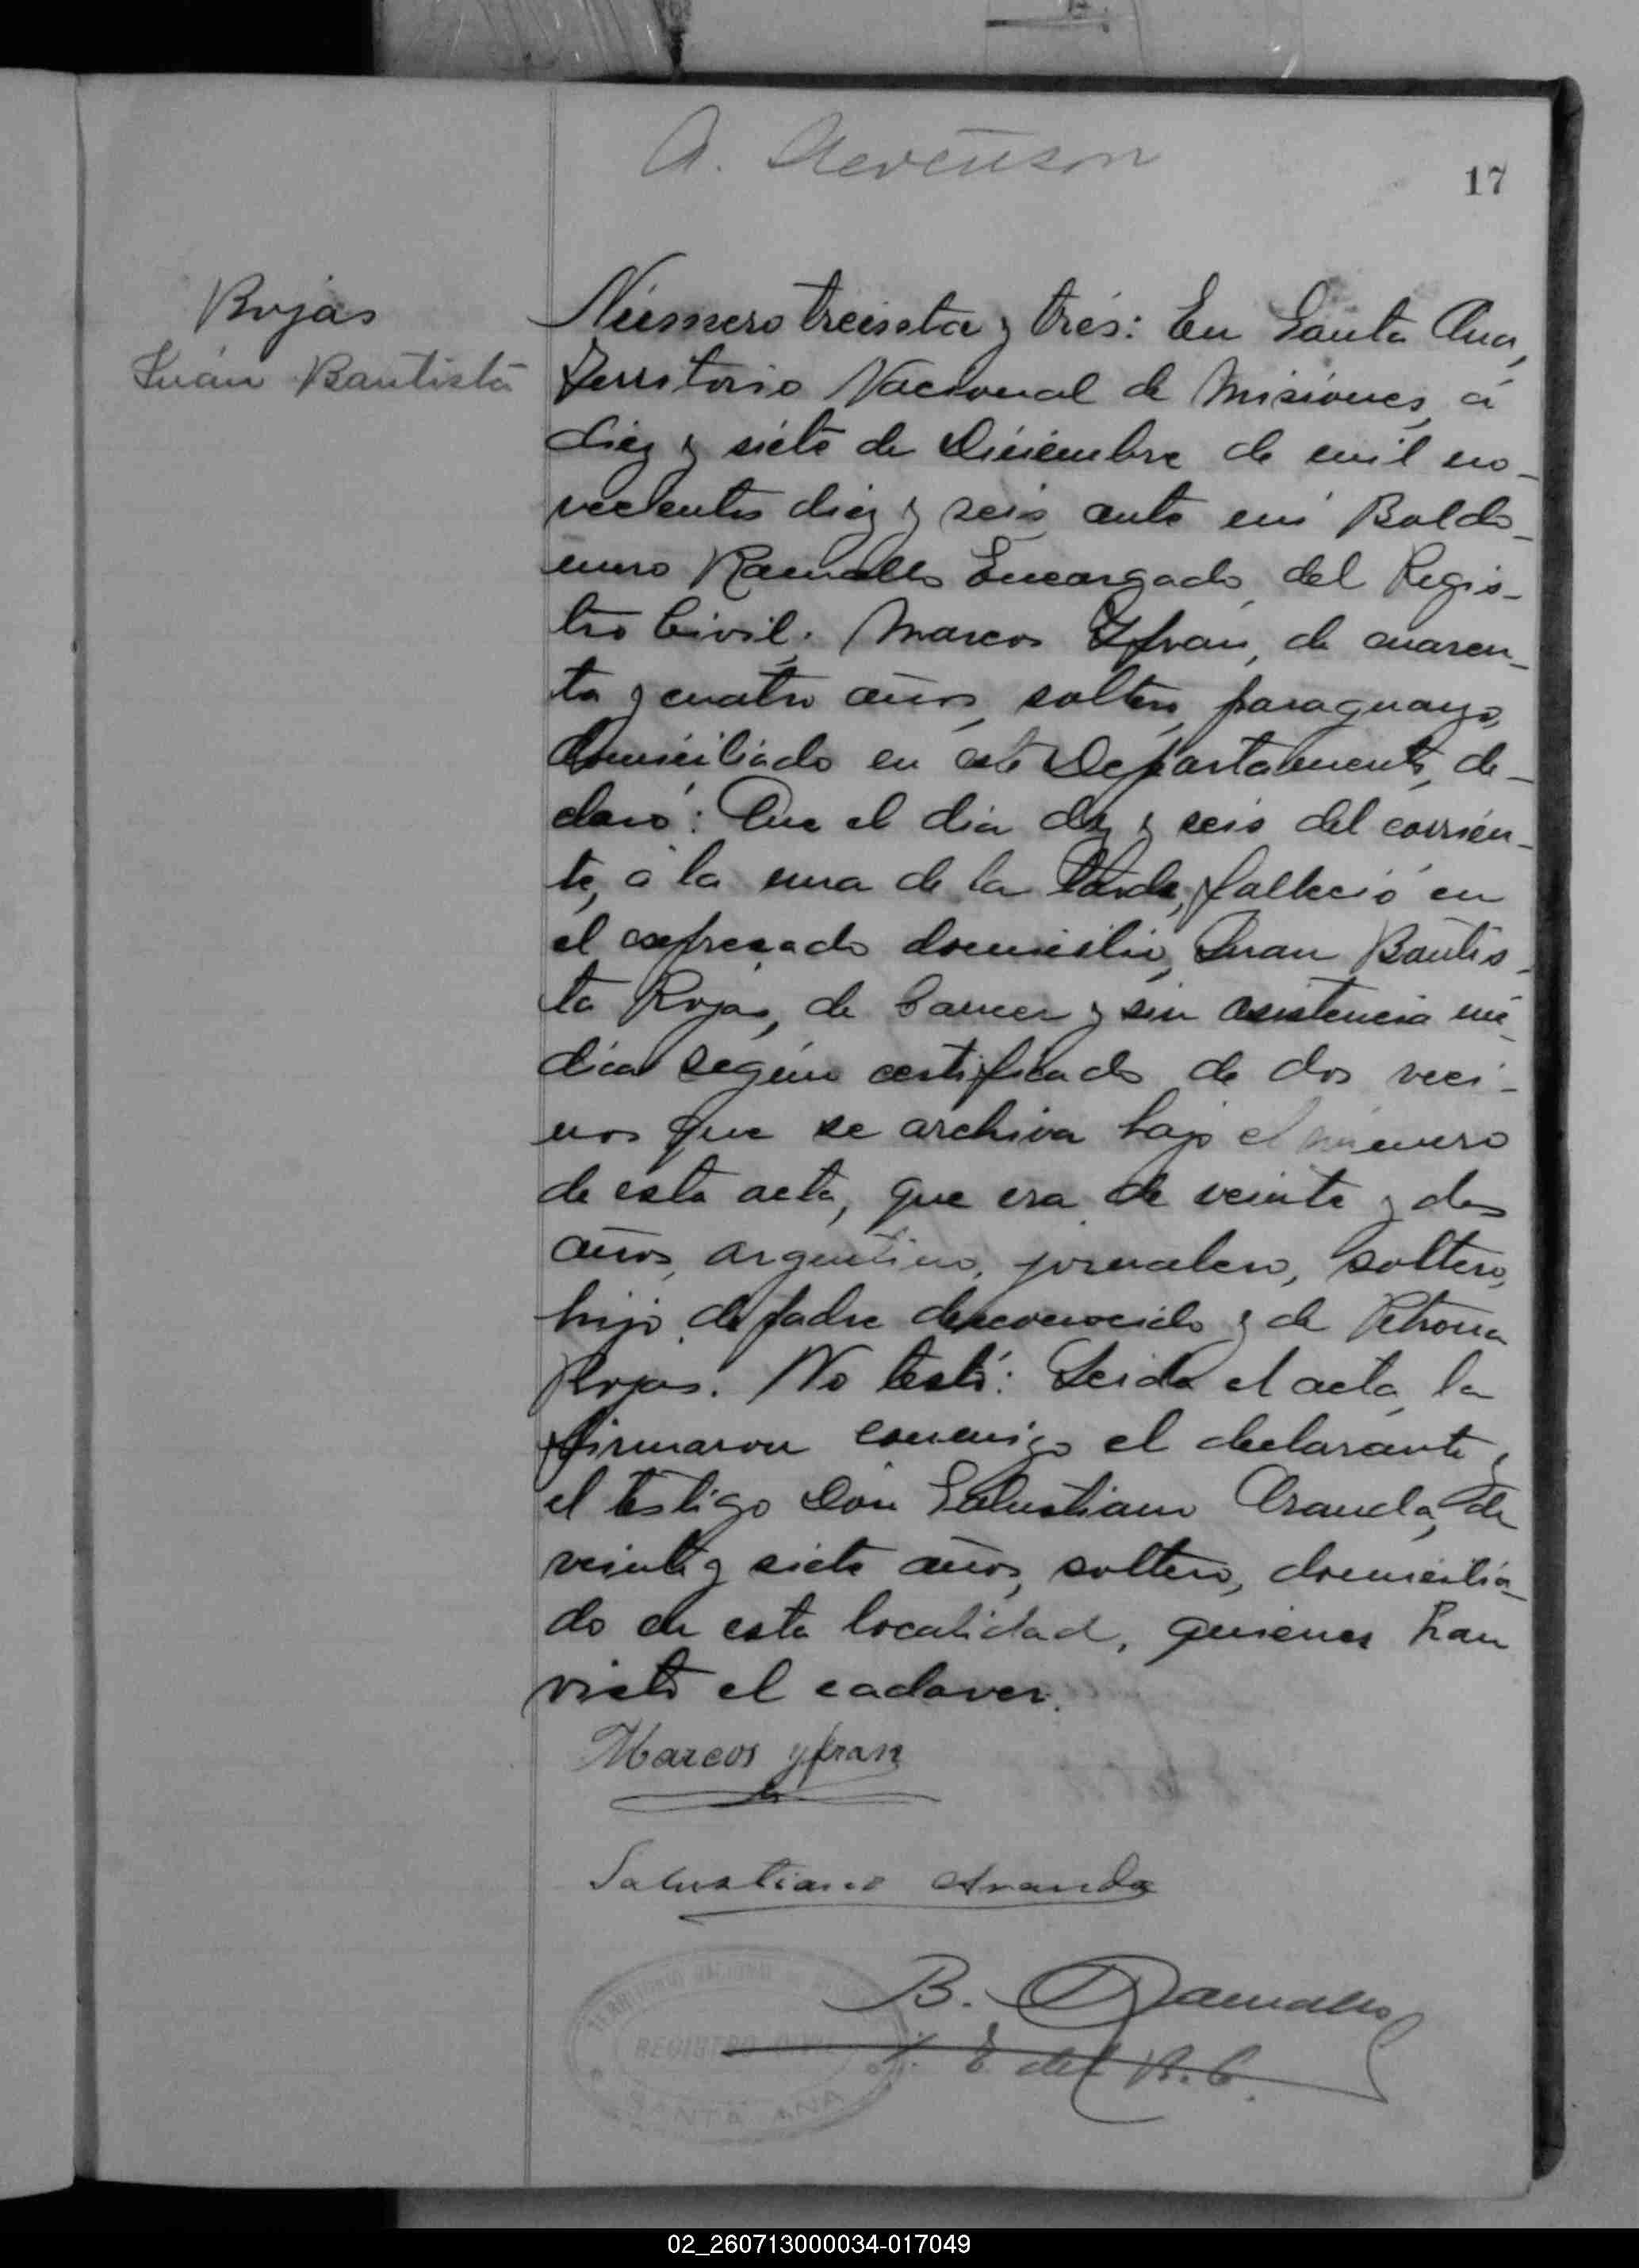 A. Stevenson
17
Rojas
Juan Bautista
Número treinta y tres: En Santa Ana,
Territorio Nacional de Misiones, á
diez y siete de Diciembre de mil no-
vecientos diez y seis, ante mi Baldo-
mero Ramallo Encargado del Regis-
tro Civil. Marcos Yfran, de cuaren-
ta y cuatro años, soltero, paraguayo,
domiciliado en este Departamento, de-
claró: Que el dia diez y seis del corrien-
te, á la una de la tarde, falleció en
el expresado domicilio, Juan Bautis-
ta Rojas, de Cancer y sin asistencia mé-
dica según certificado de dos veci-
nos que se archiva bajo el número
de esta acta, que era de veinte y dos
años, argentino, jornalero, soltero,
hijo de padre desconocido y de Petrona
Rojas. No testó: Leida el acta, la
firmaron conmigo el declarante y
el testigo Don Salustiano Aranda, de
veinte y siete años, soltero, domicilia-
do en esta localidad, quienes han
visto el cadaver.
Marcos yfran
Salustiano Aranda
B. Ramallo
E del R. C.
TERRITORIO NACIONAL DE
REGISTRO CIVIL
SANTA ANA
02_260713000034-017049